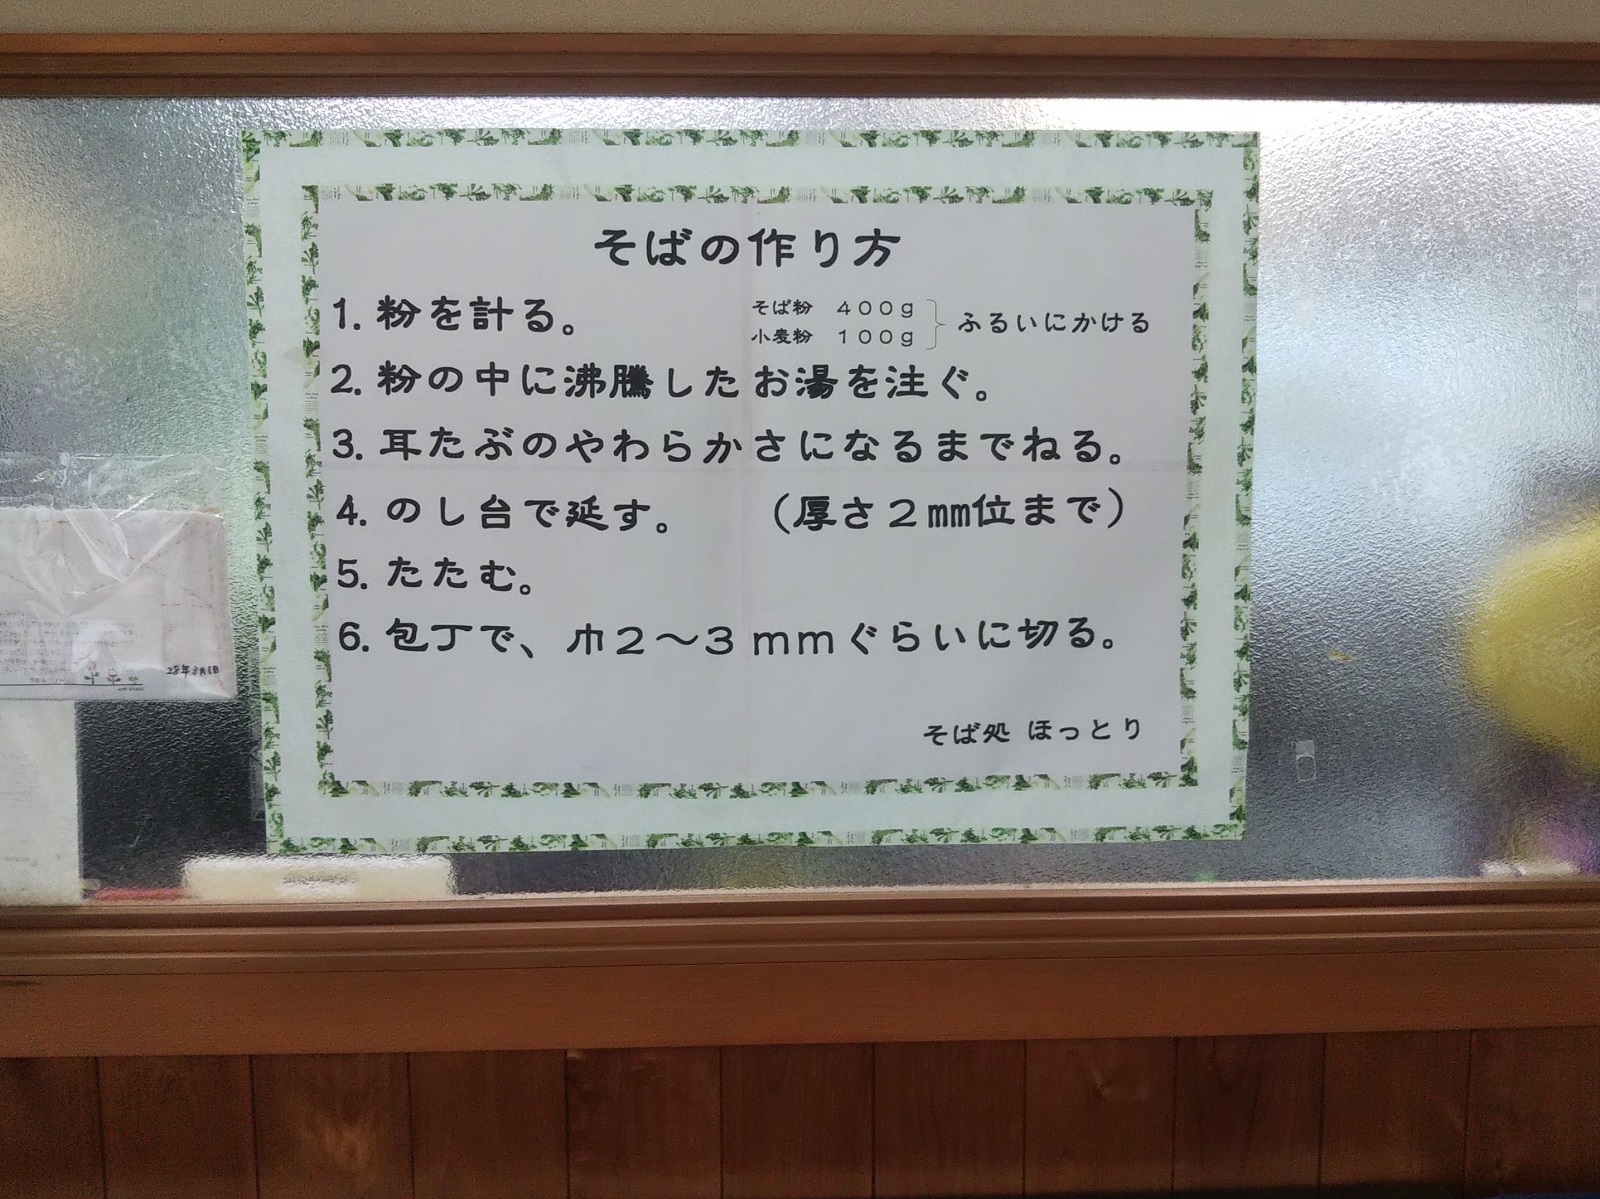 そばの作り方
1. 粉を計る。 そば粉 400g
小麦粉 100g ふるいにかける
2. 粉の中に沸騰したお湯を注ぐ。
3. 耳たぶのやわらかさになるまでねる。
4. のし台で延す。 （厚さ2㎜位まで）
5. たたむ。
6. 包丁で、巾2～3mmぐらいに切る。
そば処 ほっとり